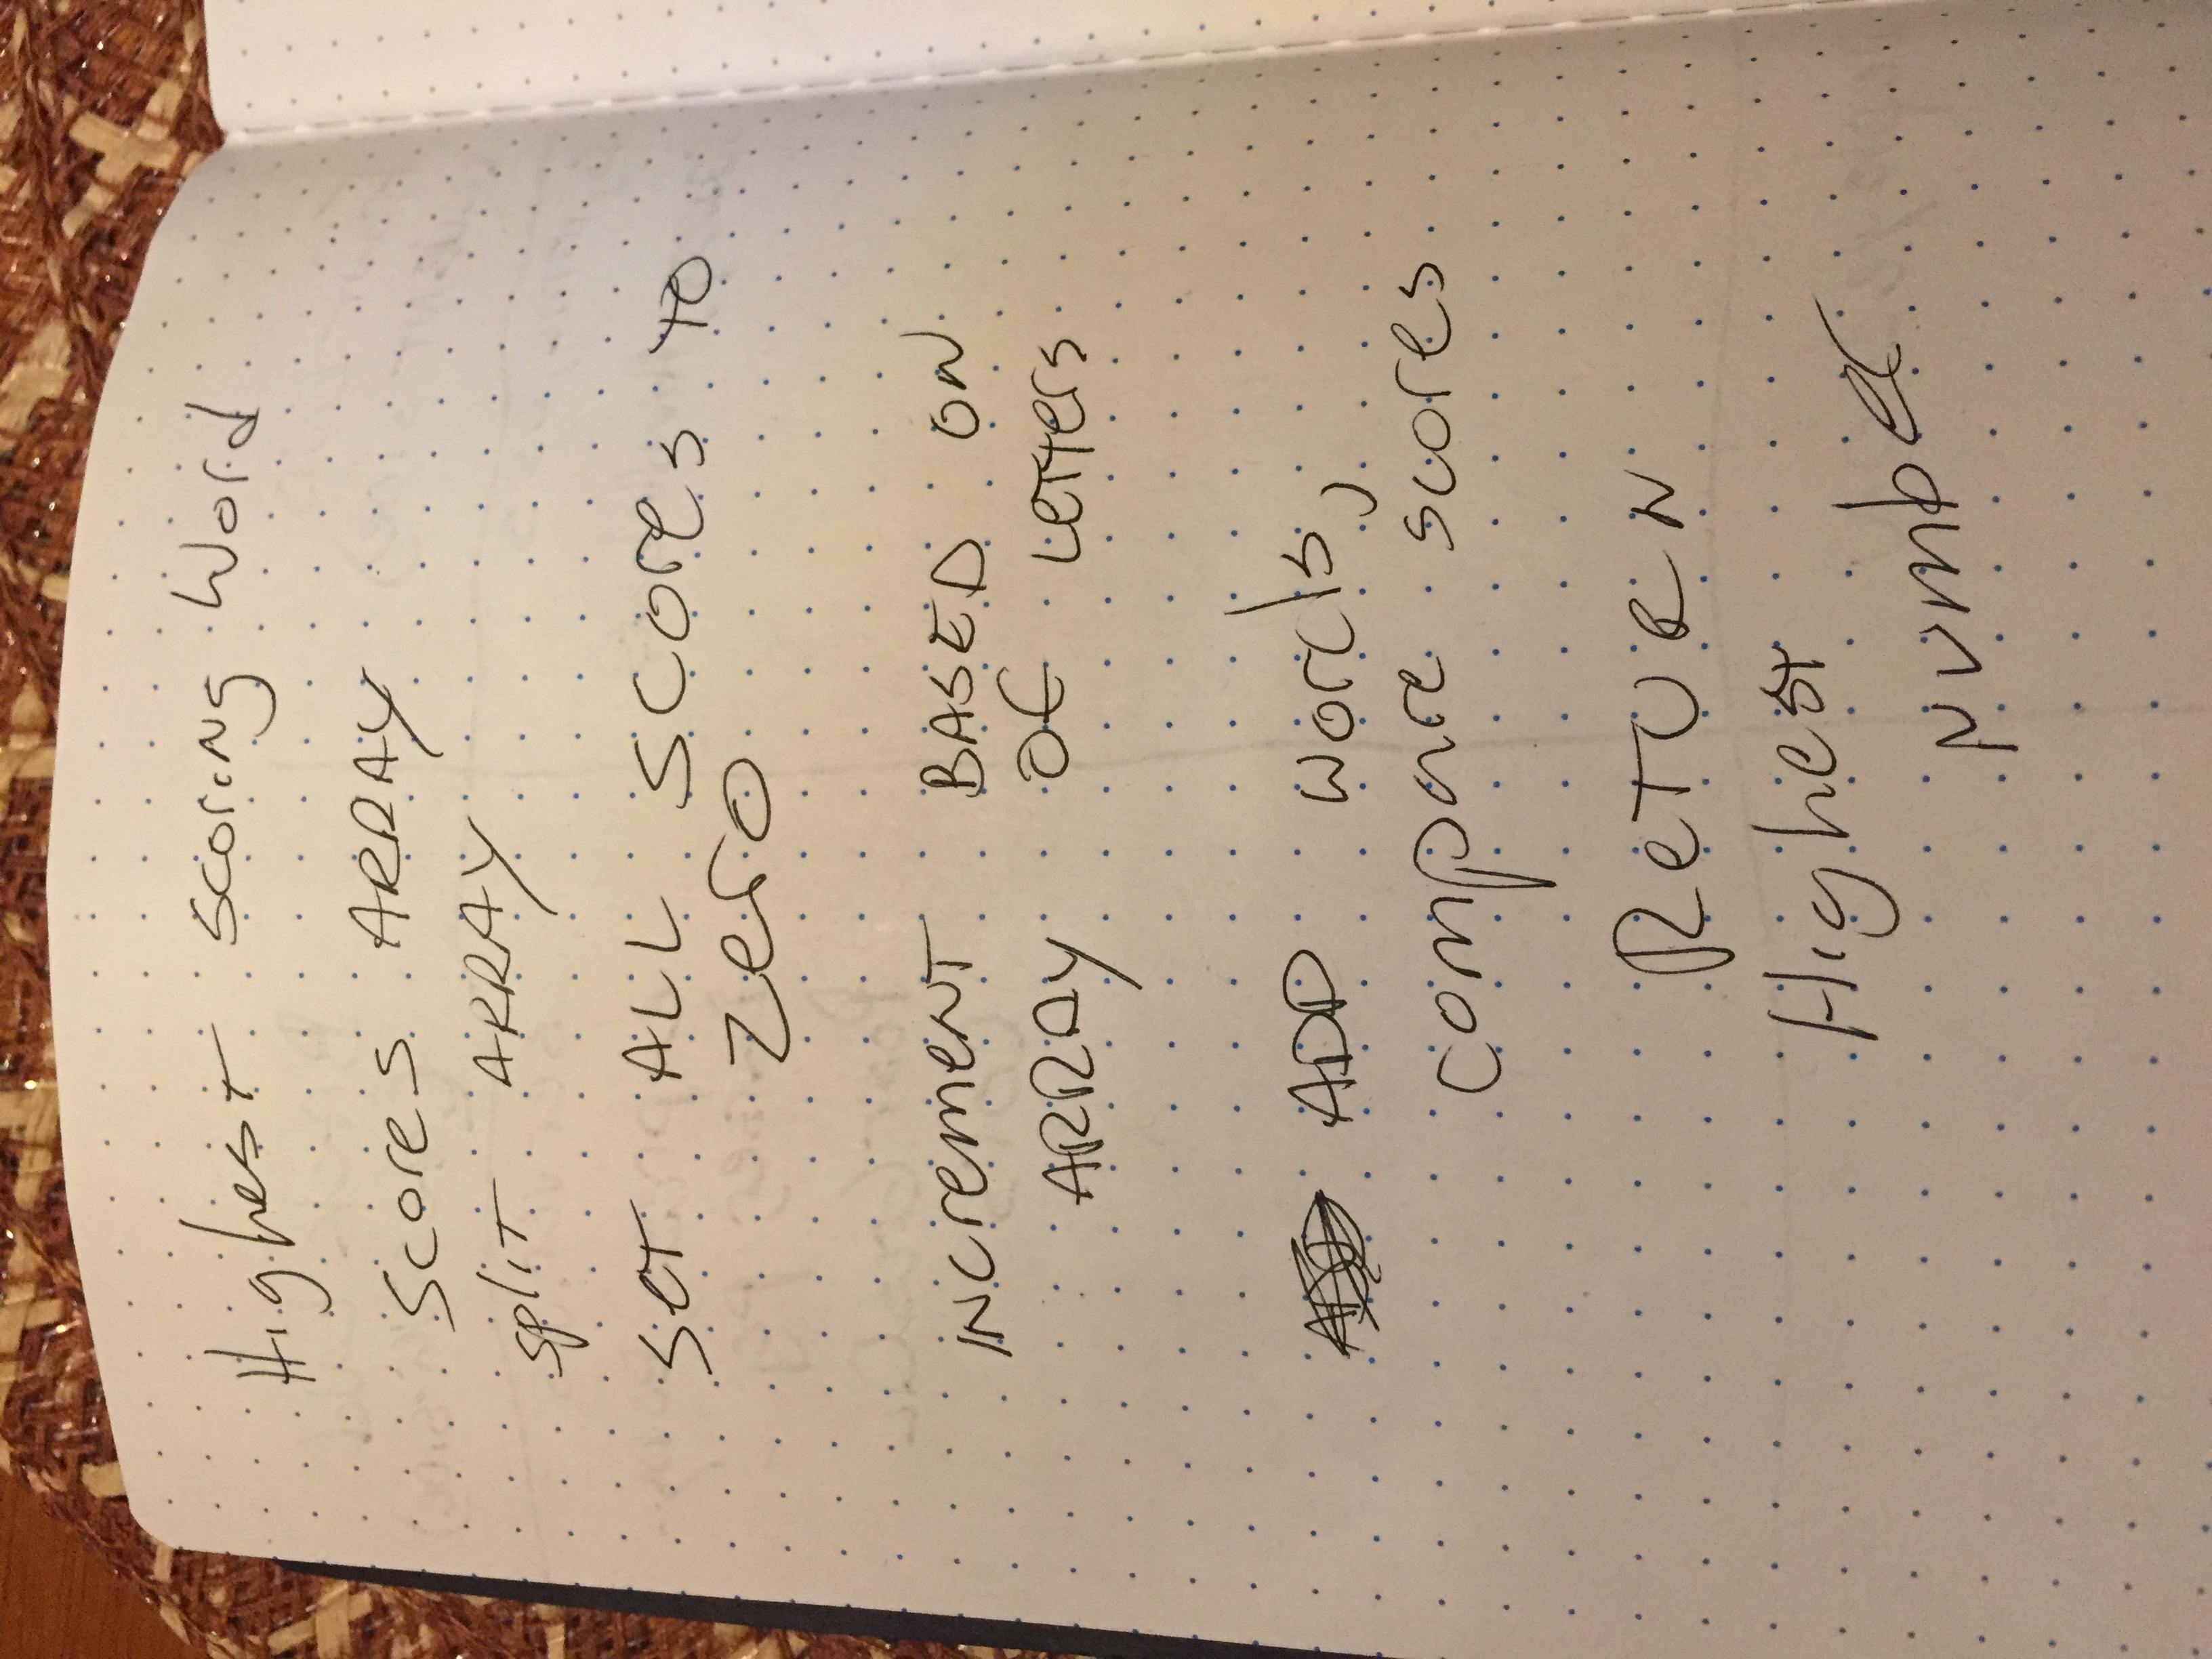 Highest scoring Word
Scores ARRAY
split ARRAY
set ALL scores to
zero
increment BASED ON
ARRAY of Letters
ADD words,
compare scores
Return
Highest
Number